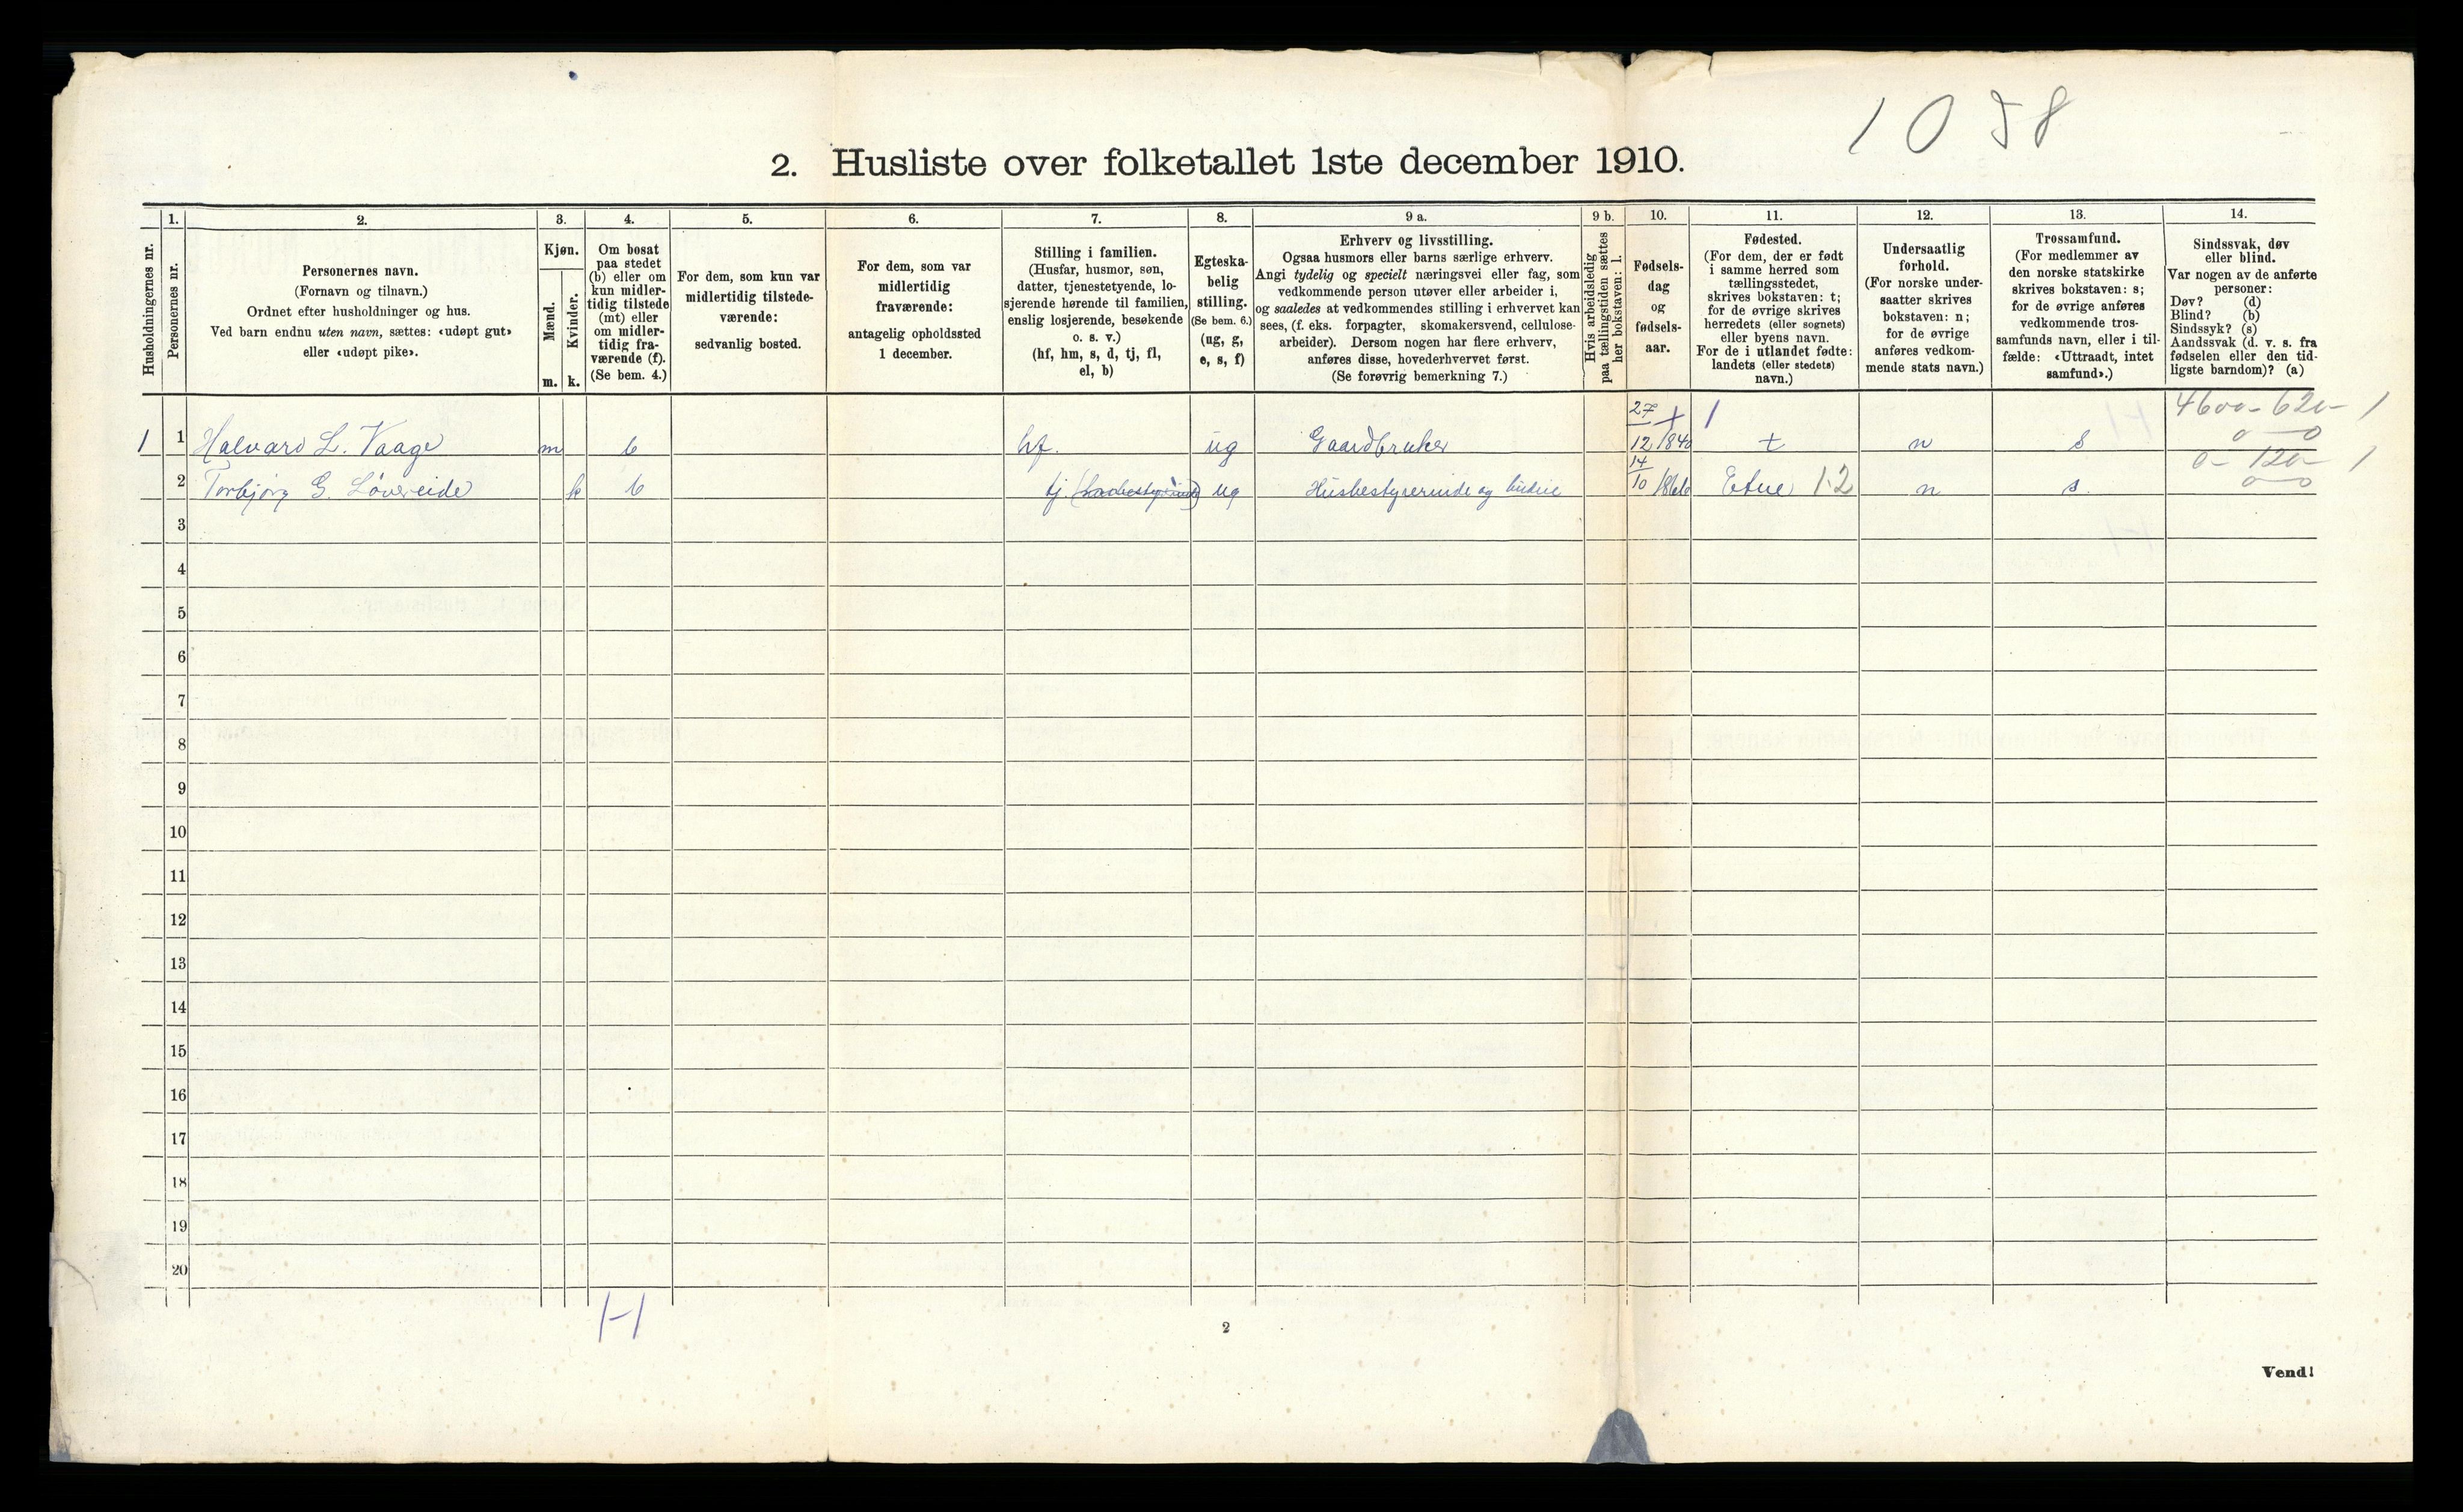 1058
2. Husliste over folketallet 1ste december 1910.
Husholdningernes nr.
1.
Personernes nr.
2.
Personernes navn.
(Fornavn og tilnavn.)
Ordnet efter husholdninger og hus.
Ved barn endnu uten navn, sættes: «udøpt gut»
eller «udøpt pike».
3.
Kjøn.
Mænd.
Kvinder.
m. k.
4.
Om bosat
paa stedet
(b) eller om
kun midler-
tidig tilstede
(mt) eller
om midler-
tidig fra-
værende (f).
(Se bem. 4.)
5.
For dem, som kun var
midlertidig tilstede-
værende:
sedvanlig bosted.
6.
For dem, som var
midlertidig
fraværende:
antagelig opholdssted
1 december.
7.
Stilling i familien.
(Husfar, husmor, søn,
datter, tjenestetyende, lo-
sjerende hørende til familien,
enslig losjerende, besøkende
o. s. v.)
(hf, hm, s, d, tj, fl,
el, b)
8.
Egteska-
belig
stilling.
(Se bem. 6.)
(ug, g,
e, s, f)
9 a.
Erhverv og livsstilling.
Ogsaa husmors eller barns særlige erhverv.
Angi tydelig og specielt næringsvei eller fag, som
vedkommende person utøver eller arbeider i,
og saaledes at vedkommendes stilling i erhvervet kan
sees, (f. eks. forpagter, skomakersvend, cellulose-
arbeider). Dersom nogen har flere erhverv,
anføres disse, hovederhvervet først.
(Se forøvrig bemerkning 7.)
9 b.
Hvis arbeidsledig
paa tællingstiden sættes
her bokstaven: l.
10.
Fødsels-
dag
og
fødsels-
aar.
11.
Fødested.
(For dem, der er født
i samme herred som
tællingsstedet,
skrives bokstaven: t;
for de øvrige skrives
herredets (eller sognets)
eller byens navn.
For de i utlandet fødte:
landets (eller stedets)
navn.)
12.
Undersaatlig
forhold.
(For norske under-
saatter skrives
bokstaven: n;
for de øvrige
anføres vedkom-
mende stats navn.)
13.
Trossamfund.
(For medlemmer av
den norske statskirke
skrives bokstaven: s;
for de øvrige anføres
vedkommende tros-
samfunds navn, eller i til-
fælde: «Uttraadt, intet
samfund».)
14.
Sindssvak, døv
eller blind.
Var nogen av de anførte
personer:
Døv? (d)
Blind? (b)
Sindssyk? (s)
Aandssvak (d. v. s. fra
fødselen eller den tid-
ligste barndom)? (a)
1 1 Halvard L. Vaage m b hf. ug Gaardbruker 27/12 1840 t n s 4600- 620- 1
0 0
2 Torbjørg G. Løvereide k b tj. ug Husbestyrerinde og budeie 14/10 1860 Etne 12 n s. 0- 120- 1
0 0
3
4
5
6
7
8
9
10
11
12
13
14
15
16
17
18
19
20
2
Vend!